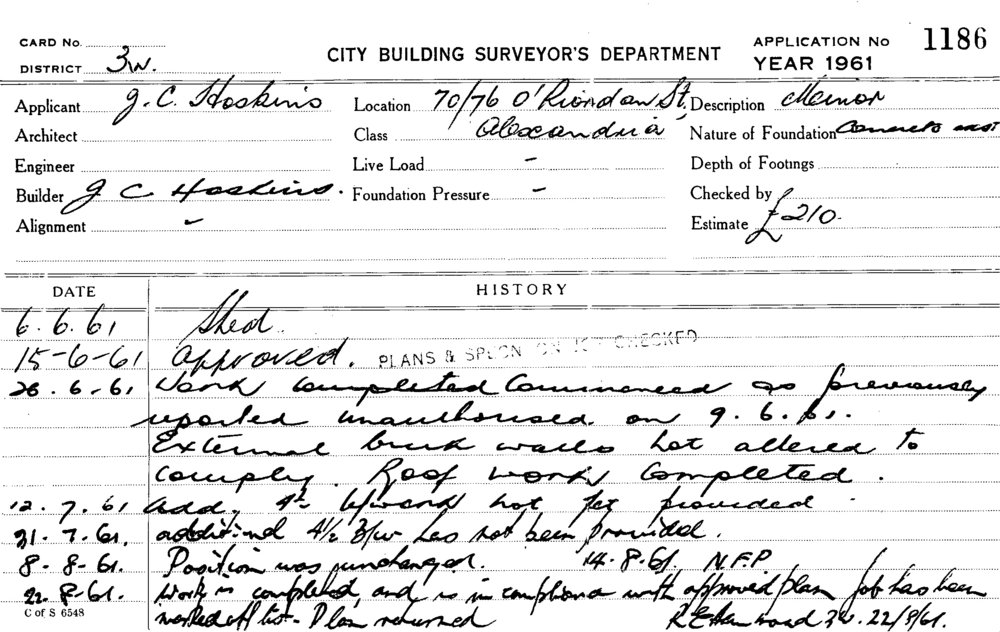 CARD No.
DISTRICT 3W.
CITY BUILDING SURVEYOR'S DEPARTMENT
APPLICATION No 1186
YEAR 1961
Applicant J. C. Hoskins Location 70/76 O'Riordan St, Description Minor
Architect Class Alexandria Nature of Foundation Concrete exist
Engineer Live Load - Depth of Footings
Builder J C Hoskins. Foundation Pressure - Checked by
Alignment - Estimate £210.
DATE HISTORY
6.6.61 Shed
15-6-61 Approved. PLANS & SPECN ON JOB CHECKED
26.6.61 Work completed Commenced as previously
reported unauthorised on 9.6.61.
External brick walls not altered to
comply. Roof work completed.
12.7.61 Add. 4½ b/work not yet provided
21.7.61. additional 4½ B/w has not been provided.
8-8-61. Position was unchanged. 14.8.61. N.F.P.
22.8.61. Work is completed, and is in compliance with approved plan job has been
marked off list - Plan returned 3W. 22/8/61.
C of S 6548